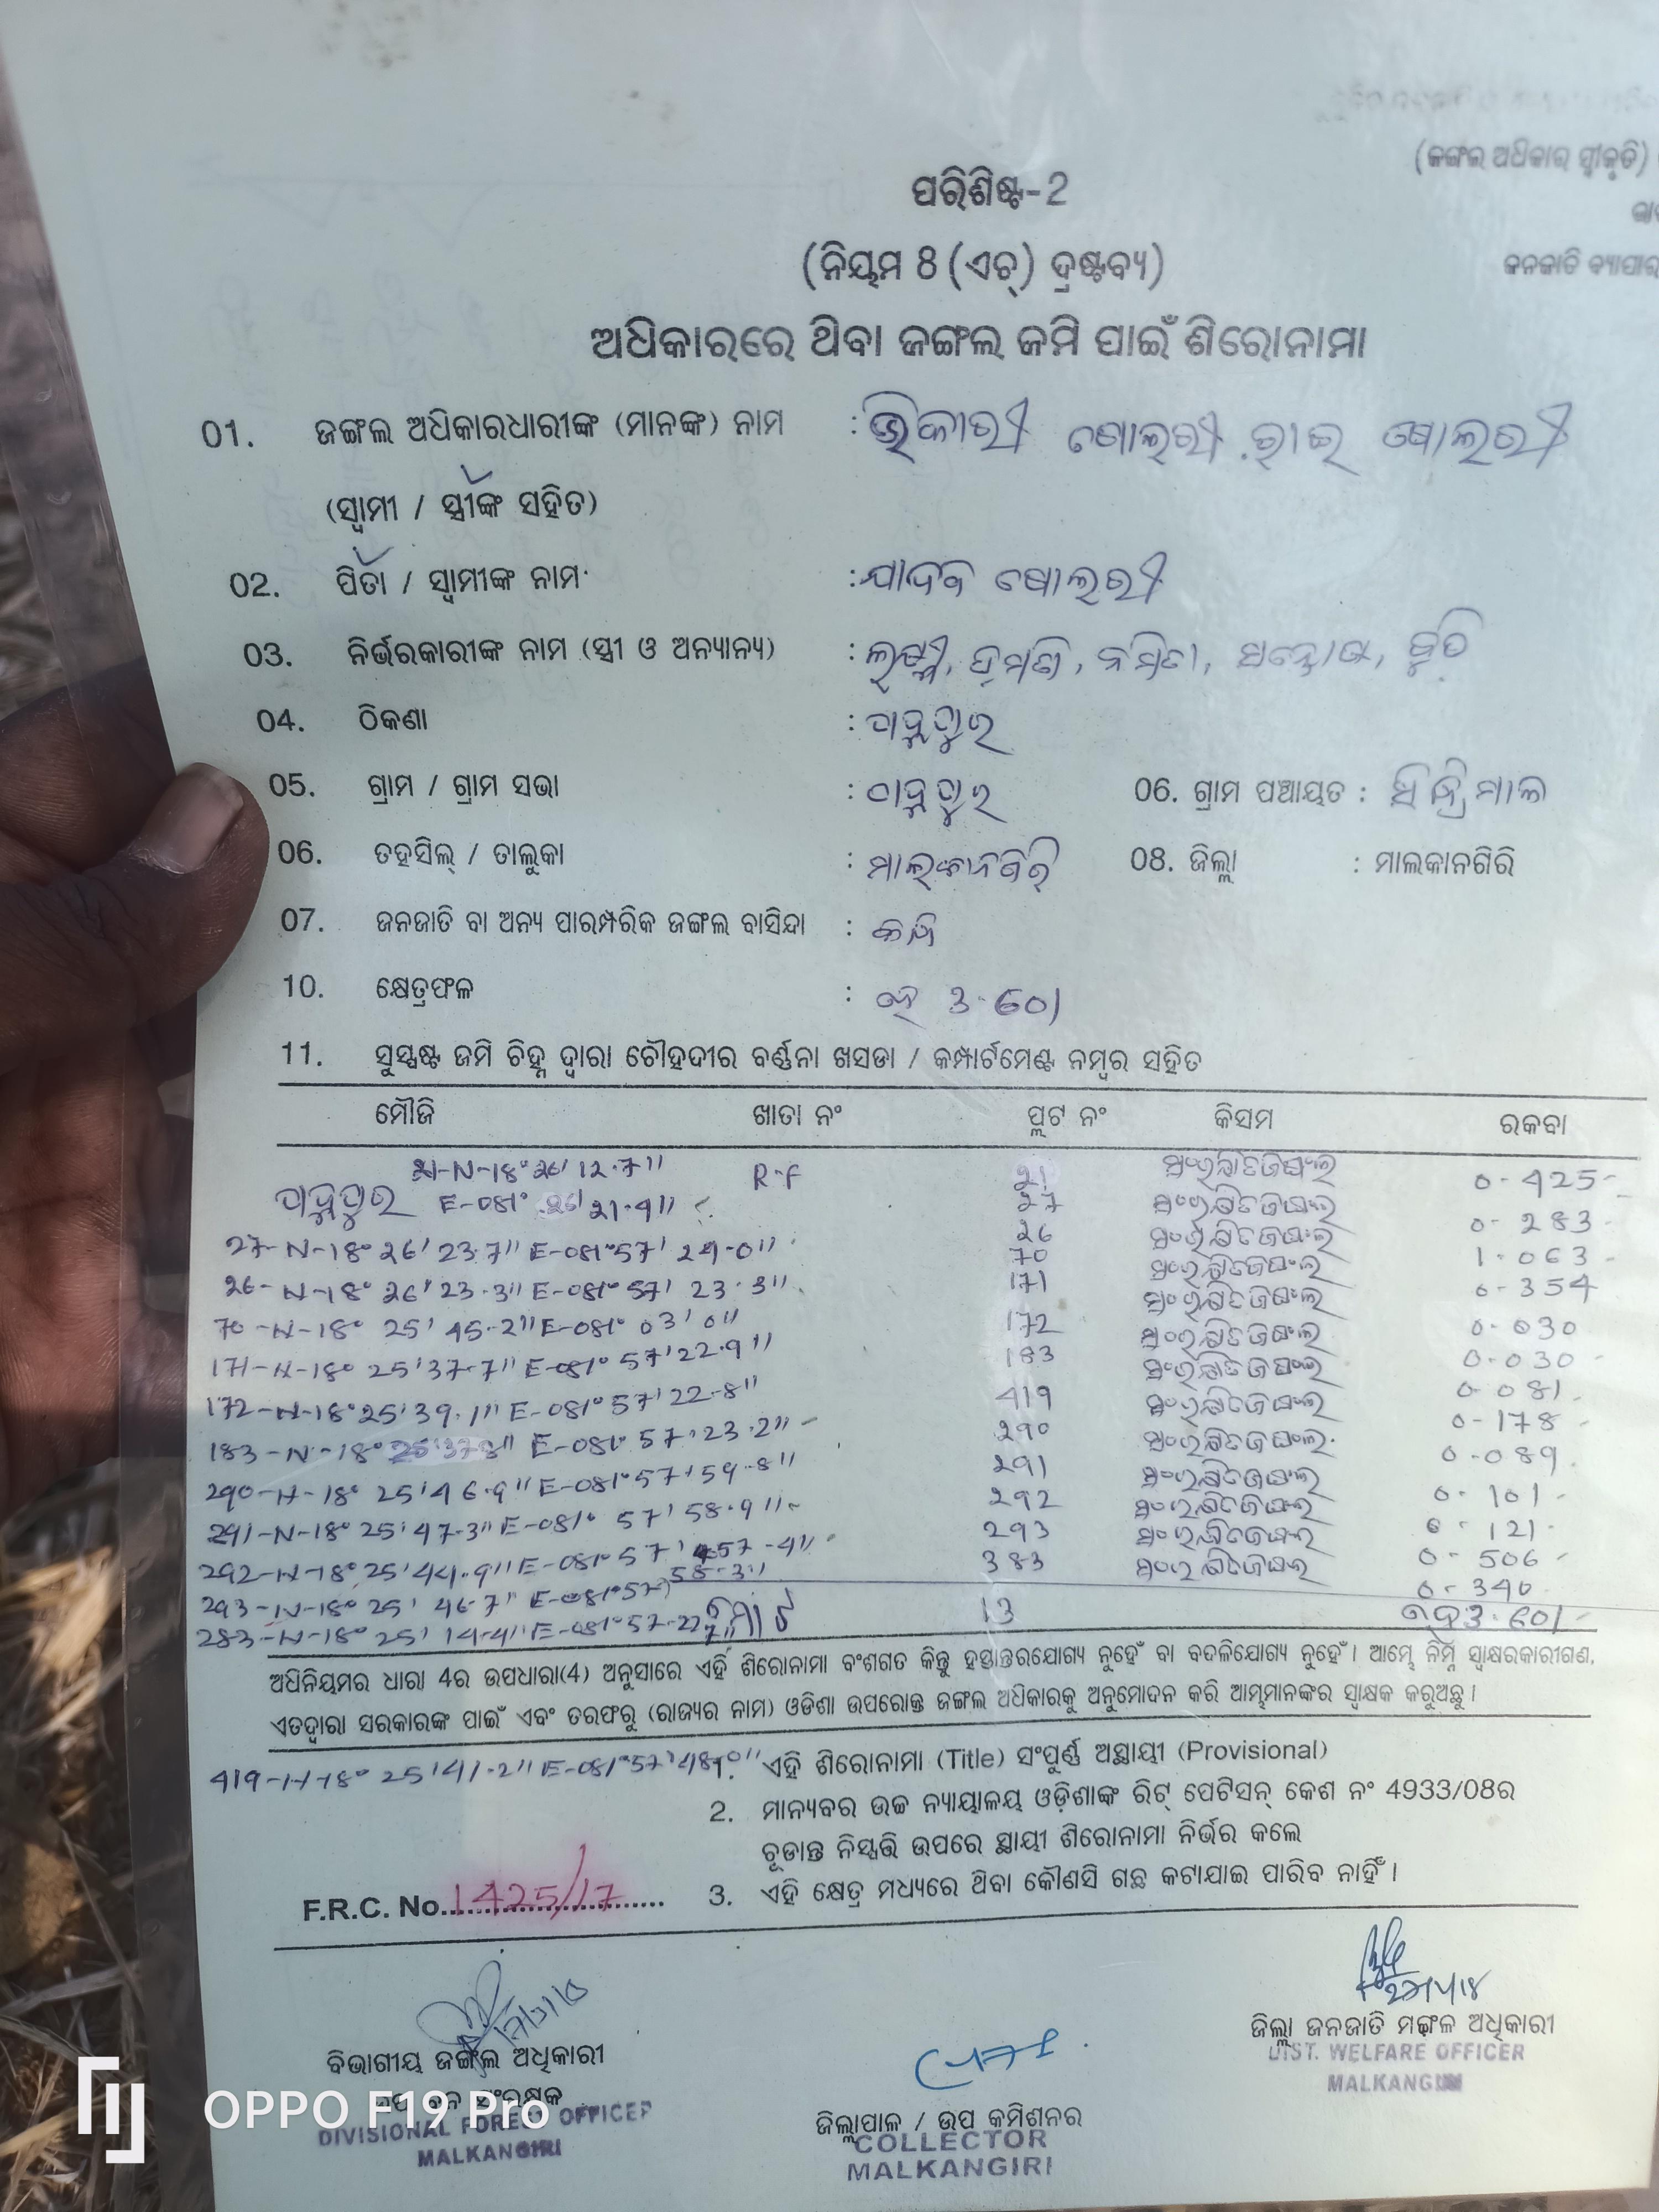 (ଜଙ୍ଗଲ ଅଧିକାର ସ୍ୱୀକୃତି)
ପରିଶିଷ୍ଟ-2
ଜନଜାତି ବ୍ୟାପାର
(ନିୟମ 8 (ଏଚ୍) ଦ୍ରଷ୍ଟବ୍ୟ)
ଅଧିକାରରେ ଥିବା ଜଙ୍ଗଲ ଜମି ପାଇଁ ଶିରୋନାମା
01. ଜଙ୍ଗଲ ଅଧିକାରଧାରୀଙ୍କ (ମାନଙ୍କ) ନାମ :
(ସ୍ୱାମୀ / ସ୍ତ୍ରୀଙ୍କ ସହିତ)
02. ପିତା / ସ୍ୱାମୀଙ୍କ ନାମ : ଯାଦବ
03. ନିର୍ଭରକାରୀଙ୍କ ନାମ (ସ୍ତ୍ରୀ ଓ ଅନ୍ୟାନ୍ୟ) :
04. ଠିକଣା : ପାହ୍ନପୁର
05. ଗ୍ରାମ / ଗ୍ରାମ ସଭା : ପାହ୍ନପୁର 06. ଗ୍ରାମ ପଞ୍ଚାୟତ :
06. ତହସିଲ୍ / ତାଲୁକା : ମାଲକାନଗିରି 08. ଜିଲ୍ଲା : ମାଲକାନଗିରି
07. ଜନଜାତି ବା ଅନ୍ୟ ପାରମ୍ପରିକ ଜଙ୍ଗଲ ବାସିନ୍ଦା :
10. କ୍ଷେତ୍ରଫଳ : ହେ 3.601
11. ସୁସ୍ପଷ୍ଟ ଜମି ଚିହ୍ନ ଦ୍ୱାରା ଚୌହଦୀର ବର୍ଣ୍ଣନା ଖସଡା / କମ୍ପାର୍ଟମେଣ୍ଟ ନମ୍ବର ସହିତ
ମୌଜି ଖାତା ନଂ ପ୍ଲଟ ନଂ କିସମ ରକବା
21-N-18° 26' 12.7" R-F 21 ସଂରକ୍ଷିତ ଜଙ୍ଗଲ 0-425
ପାହ୍ନପୁର E-081° 26' 21.9" 27 ସଂରକ୍ଷିତ ଜଙ୍ଗଲ 0-283
27-N-18° 26' 23.7" E-081° 57' 24.0" 26 ସଂରକ୍ଷିତ ଜଙ୍ଗଲ 1.063
26-N-18° 26' 23.3" E-081° 57' 23.3" 70 ସଂରକ୍ଷିତ ଜଙ୍ଗଲ 0-354
70-N-18° 25' 45.2" E-081° 03' 0" 171 ସଂରକ୍ଷିତ ଜଙ୍ଗଲ 0.030
171-N-18° 25' 37.7" E-081° 57' 22.9" 172 ସଂରକ୍ଷିତ ଜଙ୍ଗଲ 0.030
172-N-18° 25' 39.1" E-081° 57' 22.8" 183 ସଂରକ୍ଷିତ ଜଙ୍ଗଲ 0.081
183-N-18° 25' 37.8" E-081° 57' 23.2" 419 ସଂରକ୍ଷିତ ଜଙ୍ଗଲ 0-178
290-N-18° 25' 46.9" E-081° 57' 59.8" 290 ସଂରକ୍ଷିତ ଜଙ୍ଗଲ 0.089
291-N-18° 25' 47.3" E-081° 57' 58.9" 291 ସଂରକ୍ଷିତ ଜଙ୍ଗଲ 0-101
292-N-18° 25' 44.9" E-081° 57' 57.4" 292 ସଂରକ୍ଷିତ ଜଙ୍ଗଲ 0-121
293-N-18° 25' 46.7" E-081° 57' 58.3" 293 ସଂରକ୍ଷିତ ଜଙ୍ଗଲ 0-506
283-N-18° 25' 14.4" E-081° 57-22.7" 383 ସଂରକ୍ଷିତ ଜଙ୍ଗଲ 0-340
ମୋଟ 13 3.601
ଅଧିନିୟମର ଧାରା 4ର ଉପଧାରା(4) ଅନୁସାରେ ଏହି ଶିରୋନାମା ବଂଶଗତ କିନ୍ତୁ ହସ୍ତାନ୍ତରଯୋଗ୍ୟ ନୁହେଁ ବା ବଦଳିଯୋଗ୍ୟ ନୁହେଁ। ଆମ୍ଭେ ନିମ୍ନ ସ୍ୱାକ୍ଷରକାରୀଗଣ,
ଏତଦ୍ୱାରା ସରକାରଙ୍କ ପାଇଁ ଏବଂ ତରଫରୁ (ରାଜ୍ୟର ନାମ) ଓଡିଶା ଉପରୋକ୍ତ ଜଙ୍ଗଲ ଅଧିକାରକୁ ଅନୁମୋଦନ କରି ଆମ୍ଭମାନଙ୍କର ସ୍ୱାକ୍ଷକ କରୁଅଛୁ।
419-N-18° 25' 41.2" E-081° 57' 48.0"
1. ଏହି ଶିରୋନାମା (Title) ସଂପୁର୍ଣ୍ଣ ଅସ୍ଥାୟୀ (Provisional)
2. ମାନ୍ୟବର ଉଚ୍ଚ ନ୍ୟାୟାଳୟ ଓଡ଼ିଶାଙ୍କ ରିଟ୍ ପେଟିସନ୍ କେଶ ନଂ 4933/08ର
ଚୂଡାନ୍ତ ନିସ୍ପତ୍ତି ଉପରେ ସ୍ଥାୟୀ ଶିରୋନାମା ନିର୍ଭର କଲେ
3. ଏହି କ୍ଷେତ୍ର ମଧ୍ୟରେ ଥିବା କୌଣସି ଗଛ କଟାଯାଇ ପାରିବ ନାହିଁ।
F.R.C. No. 1425/17
ବିଭାଗୀୟ ଜଙ୍ଗଲ ଅଧିକାରୀ
DIVISIONAL FOREST OFFICER
MALKANGIRI
ଜିଲ୍ଲାପାଳ / ଉପ କମିଶନର
COLLECTOR
MALKANGIRI
ଜିଲ୍ଲା ଜନଜାତି ମଙ୍ଗଳ ଅଧିକାରୀ
DIST. WELFARE OFFICER
MALKANGIRI
OPPO F19 Pro